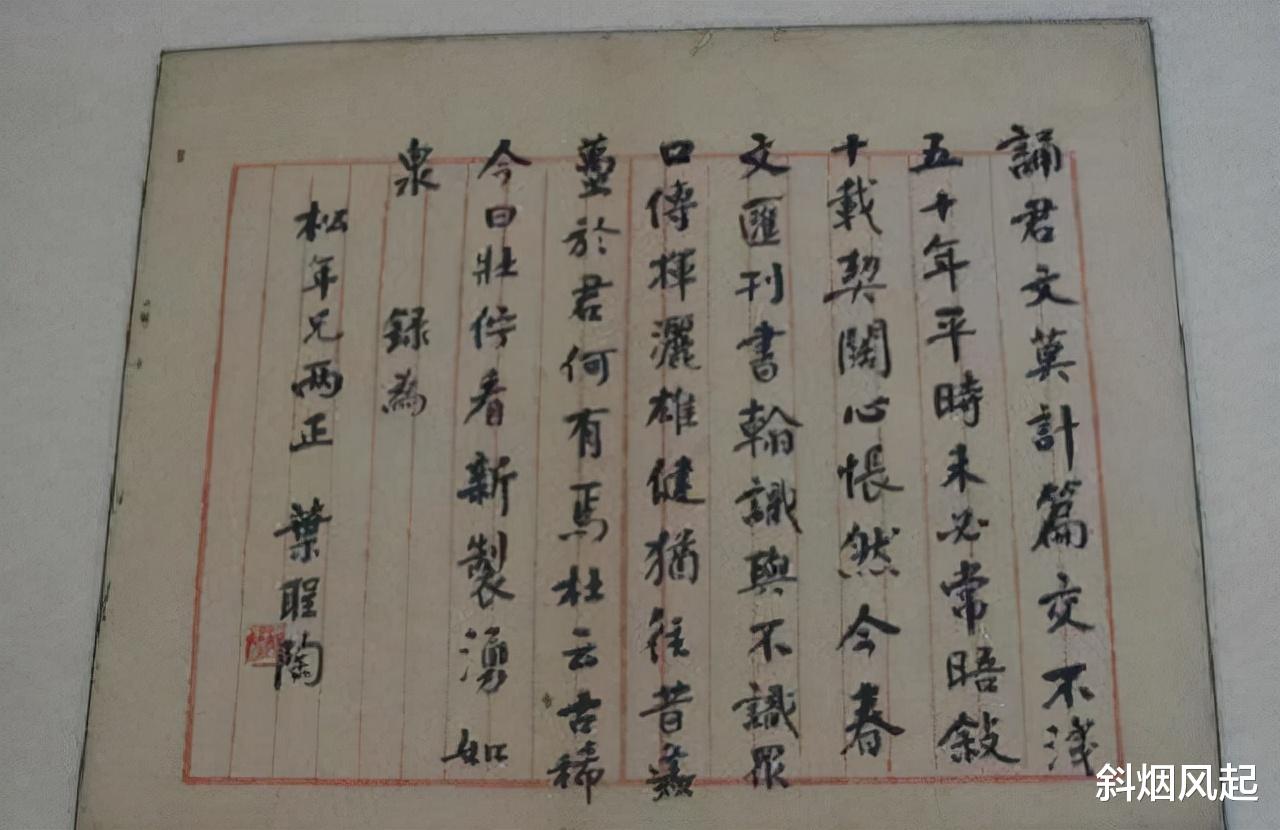 誦君文莫計篇交不淺
五十年平時未必常晤敍
十載契闊心悵然今春
文匯刊書翰識與不識眾
口傳揮灑雄健猶往昔
蠆於君何有焉杜云古稀
今日壯佇看新製湧如
泉 録為
松年兄兩正 葉聖陶
斜烟风起